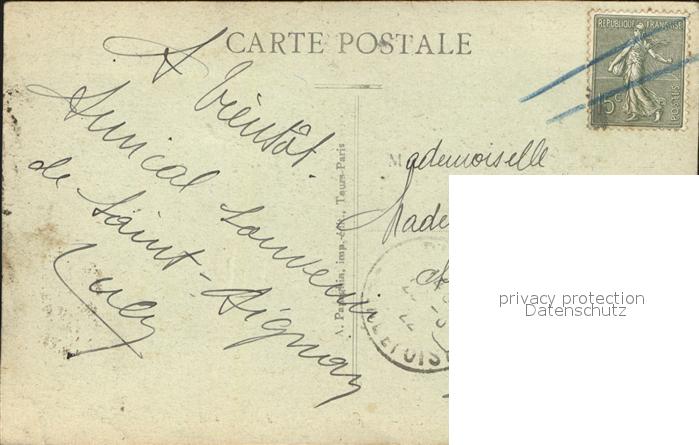 CARTE POSTALE
REPUBLIQUE FRANÇAISE
15c
POSTES
A bientôt.
Amical souvenir
de Saint-Aignan
Lucy
imp. édit., Tours-Paris
Mademoiselle
privacy protection
Datenschutz